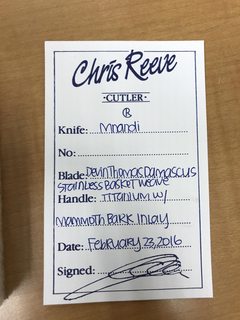 Chris Reeve
·CUTLER·
®
Knife: Mnandi
No:
Blade: Devin Thomas Damascus
Stainless Basket Weave
Handle: Titanium w/
Mammoth Bark Inlay
Date: February 23, 2016
Signed: